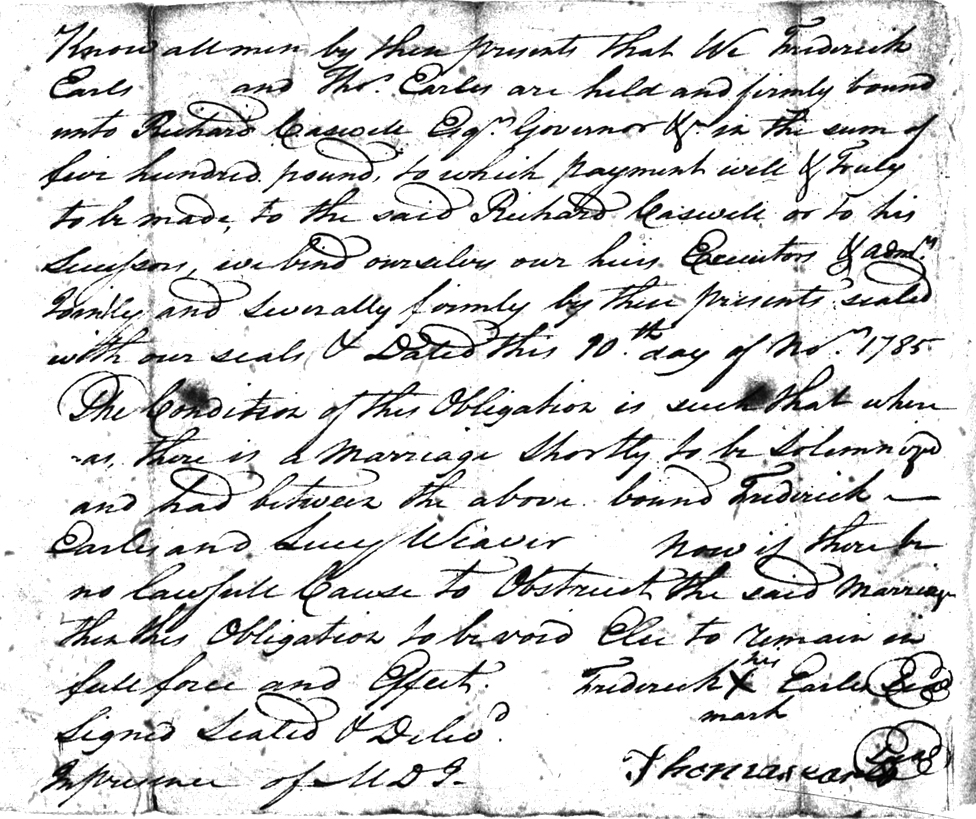 Know all men by these presents that We Frederick
Earls and Thos. Earles are held and firmly bound
unto Richard Caswell Esqr. Governor &c in the sum of
five hundred pound, to which payment well & Truly
to be made, to the said Richard Caswell or to his
Successors, we bind ourselves our heirs Executors & admrs.
Jointly and Severally firmly by these presents sealed
with our seals & Dated this 10.th day of Nor. 1785
The Condition of this Obligation is such that where
-as, there is a Marriage Shortly to be Solemnized
and had between the above bound Frederick
Earles and Lucy Weaver Now if there be
no lawfull Cause to Obstruct the said Marriage
then this Obligation to be void Else to remain in
full force and Effect. Frederick his X mark Earles Seal
Signed Sealed & Delivd.
In presence of M D J. Thomas Earles Seal